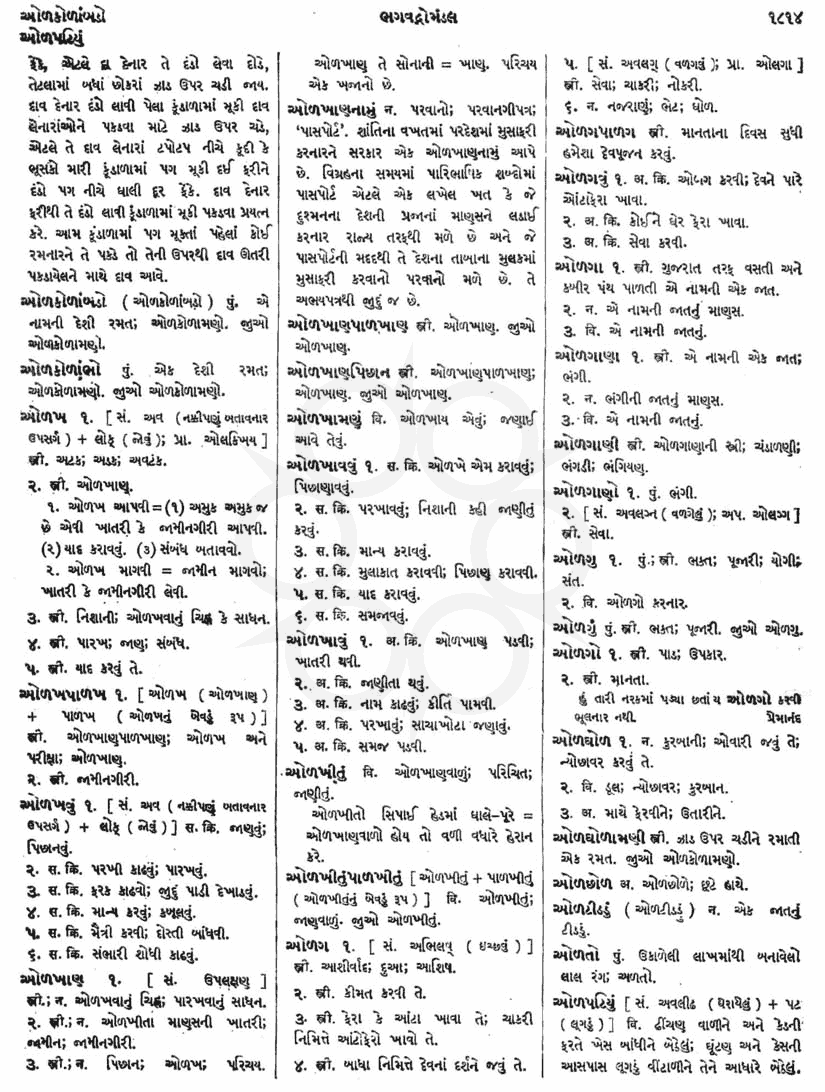 ઓળકોળાંબડો
ભગવદ્ગોમંડલ
૧૮૧૪
ઓળપટિયું
ફેંકે, એટલે દા દેનાર તે દંડો લેવા દોડે,
તેટલામાં બધાં છોકરાં ઝાડ ઉપર ચડી જાય.
દાવ દેનાર દંડો લાવી પેલા કૂંડાળામાં મૂકી દાવ
લેનારાંઓને પકડવા માટે ઝાડ ઉપર ચડે,
એટલે તે દાવ લેનારાં ટપોટપ નીચે કૂદી કે
ભૂસકો મારી કૂંડાળામાં પગ મૂકી દઈ ફરીને
દંડો પગ નીચે ઘાલી દૂર ફેંકે. દાવ દેનાર
ફરીથી તે દંડો લાવી કૂંડાળામાં મૂકી પકડવા પ્રયત્ન
કરે. આમ કૂંડાળામાં પગ મૂકતાં પહેલાં કોઈ
રમનારને તે પકડે તો તેની ઉપરથી દાવ ઊતરી
પકડાયેલને માથે દાવ આવે.
ઓળકોળાંબડો ( ઓળકોળાંબડ઼ો ) પું. એ
નામની દેશી રમત; ઓળકોળામણો. જુઓ
ઓળકોળામણો.
ઓળકોળાંભો પું. એક દેશી રમત;
ઓળકોળામણો. જુઓ ઓળકોળામણો.
ઓળખ ૧. [ સં. અવ ( નક્કીપણું બતાવનાર
ઉપસર્ગ ) + લોક્ ( જોવું ); પ્રા. ઓલક્ખિય ]
સ્ત્રી. અટક; અડક; અવટંક.
૨. સ્ત્રી. ઓળખાણ.
૧. ઓળખ આપવી = (૧) અમુક અમુક જ
છે એવી ખાતરી કે જામીનગીરી આપવી.
(૨) યાદ કરાવવું. (૩) સંબંધ બતાવવો.
૨. ઓળખ માગવી = જામીન માગવો;
ખાતરી કે જામીનગીરી લેવી.
૩. સ્ત્રી. નિશાની; ઓળખવાનું ચિહ્ન કે સાધન.
૪. સ્ત્રી. પારખ; જાણ; સંબંધ.
૫. સ્ત્રી. યાદ કરવું તે.
ઓળખપાળખ ૧. [ ઓળખ ( ઓળખાણ )
+ પાળખ ( ઓળખનું બેવડું રૂપ ) ]
સ્ત્રી. ઓળખાણપાળખાણ; ઓળખ અને
પરીક્ષા; ઓળખાણ.
૨. સ્ત્રી. જામીનગીરી.
ઓળખવું ૧. [ સં. અવ ( નક્કીપણું બતાવનાર
ઉપસર્ગ ) + લોક્ ( જોવું ) ] સ. ક્રિ. જાણવું;
પિછાનવું.
૨. સ. ક્રિ. પરખી કાઢવું; પારખવું.
૩. સ. ક્રિ. ફરક કાઢવો; જુદું પાડી દેખાડવું.
૪. સ. ક્રિ. માન્ય કરવું; કબૂલવું.
૫. સ. ક્રિ. મૈત્રી કરવી; દોસ્તી બાંધવી.
૬. સ. ક્રિ. સંભારી શોધી કાઢવું.
ઓળખાણ ૧. [ સં. ઉપલક્ષણ ]
સ્ત્રી.; ન. ઓળખવાનું ચિહ્ન; પારખવાનું સાધન.
૨. સ્ત્રી.; ન. ઓળખીતા માણસની ખાતરી;
જામીન; જામીનગીરી.
૩. સ્ત્રી.; ન. પિછાન; ઓળખ; પરિચય.
ઓળખાણ તે સોનાની = ખાણ. પરિચય
એક ખજાનો છે.
ઓળખાણનામું ન. પરવાનો; પરવાનગીપત્ર;
'પાસપોર્ટ'. શાંતિના વખતમાં પરદેશમાં મુસાફરી
કરનારને સરકાર એક ઓળખાણનામું આપે
છે. વિગ્રહના સમયમાં પારિભાષિક શબ્દોમાં
પાસપોર્ટ એટલે એક લખેલ ખત કે જે
દુશ્મનના દેશની પ્રજાનાં માણસને લડાઈ
કરનાર રાજ્ય તરફથી મળે છે અને જે
પાસપોર્ટની મદદથી તે દેશના તાબાના મુલકમાં
મુસાફરી કરવાનો પરવાનો મળે છે. તે
અભયપત્રથી જુદું જ છે.
ઓળખાણપાળખાણ સ્ત્રી. ઓળખાણ. જુઓ
ઓળખાણ.
ઓળખાણપિછાન સ્ત્રી. ઓળખાણપાળખાણ;
ઓળખાણ. જુઓ ઓળખાણ.
ઓળખામણું વિ. ઓળખાય એવું; જણાઈ
આવે તેવું.
ઓળખાવવું ૧. સ. ક્રિ. ઓળખે એમ કરાવવું;
પિછાણાવવું.
૨. સ. ક્રિ. પરખાવવું; નિશાની કહી જાણીતું
કરવું.
૩. સ. ક્રિ. માન્ય કરાવવું.
૪. સ. ક્રિ. મુલાકાત કરાવવી; પિછાણ કરાવવી.
૫. સ. ક્રિ. યાદ કરાવવું.
૬. સ. ક્રિ. સમજાવવું.
ઓળખાવું ૧. અ. ક્રિ. ઓળખાણ પડવી;
ખાતરી થવી.
૨. અ. ક્રિ. જાણીતા થવું.
૩. અ. ક્રિ. નામ કાઢવું; કીર્તિ પામવી.
૪. અ. ક્રિ. પરખાવું; સાચાખોટા જણાવું.
૫. અ. ક્રિ. સમજ પડવી.
ઓળખીતું વિ. ઓળખાણવાળું; પરિચિત;
જાણીતું.
ઓળખીતો સિપાઈ હેડમાં ઘાલે-પૂરે =
ઓળખાણવાળો હોય તો વળી વધારે હેરાન
કરે.
ઓળખીતુંપાળખીતું [ ઓળખીતું + પાળખીતું
( ઓળખીતુંનું બેવડું રૂપ ) ] વિ. ઓળખીતું;
જાણવાળું. જુઓ ઓળખીતું.
ઓળગ ૧. [ સં. અભિલષ્ ( ઇચ્છવું ) ]
સ્ત્રી. આશીર્વાદ; દુઆ; આશિષ.
૨. સ્ત્રી. કીમત કરવી તે.
૩. સ્ત્રી. ફેરા કે આંટા ખાવા તે; ચાકરી
નિમિત્તે આંટોફેરો ખાવો તે.
૪. સ્ત્રી. બાધા નિમિત્તે દેવનાં દર્શને જવું તે.
૫. [ સં. અવલગ્ ( વળગવું ); પ્રા. ઓલગા ]
સ્ત્રી. સેવા; ચાકરી; નોકરી.
૬. ન. નજરાણું; ભેટ; ધોળ.
ઓળગપાળગ સ્ત્રી. માનતાના દિવસ સુધી
હમેશા દેવપૂજન કરવું.
ઓળગવું ૧. અ. ક્રિ. ઓબગ કરવી; દેવને પારે
આંટાફેરા ખાવા.
૨. અ. ક્રિ. કોઈને ઘેર ફેરા ખાવા.
૩. અ. ક્રિ. સેવા કરવી.
ઓળગા ૧. સ્ત્રી. ગુજરાત તરફ વસતી અને
કબીર પંથ પાળતી એ નામની એક જાત.
૨. ન. એ નામની જાતનું માણસ.
૩. વિ. એ નામની જાતનું.
ઓળગાણા ૧. સ્ત્રી. એ નામની એક જાત;
ભંગી.
૨. ન. ભંગીની જાતનું માણસ.
૩. વિ. એ નામની જાતનું.
ઓળગાણી સ્ત્રી. ઓળગાણાની સ્ત્રી; ચંડાળણી;
ભંગડી; ભંગિયણ.
ઓળગાણો ૧. પું. ભંગી.
૨. [ સં. અવલગ્ન ( વળગેલું ); અપ. ઓલગ્ગ ]
સ્ત્રી. સેવા.
ઓળગુ ૧. પું.; સ્ત્રી. ભક્ત; પૂજારી; યોગી;
સંત.
૨. વિ. ઓળગો કરનાર.
ઓળગું પું. સ્ત્રી. ભક્ત; પૂજારી. જુઓ ઓળગુ.
ઓળગો ૧. સ્ત્રી. પાડ; ઉપકાર.
૨. સ્ત્રી. માનતા.
હું તારી નરકમાં પડ્યા છતાં ય ઓળગો કરવી
ભૂલનાર નથી. પ્રેમાનંદ
ઓળઘોળ ૧. ન. કુરબાની; ઓવારી જવું તે;
ન્યોછાવર કરવું તે.
૨. વિ. ડૂલ; ન્યોછાવર; કુરબાન.
૩. અ. માથે ફેરવીને; ઉતારીને.
ઓળઘોળામણી સ્ત્રી. ઝાડ ઉપર ચડીને રમાતી
એક રમત. જુઓ ઓળકોળામણો.
ઓળછોળ અ. ઓળછોળે; છૂટે હાથે.
ઓળટીડડું ( ઓળટીડડ઼ું ) ન. એક જાતનું
ટીડડું.
ઓળતો પું. ઉકાળેલી લાખમાંથી બનાવેલો
લાલ રંગ; અળતો.
ઓળપટિયું [ સં. અવલીઢ ( ઘેરાયેલું ) + પટ
( લૂગડું ) ] વિ. ઢીંચણ વાળીને અને કેડની
ફરતે ખેસ બાંધીને બેઠેલું; ઘૂંટણ અને કેસની
આસપાસ લૂગડું વીંટાળીને તેને આધારે બેઠેલું.